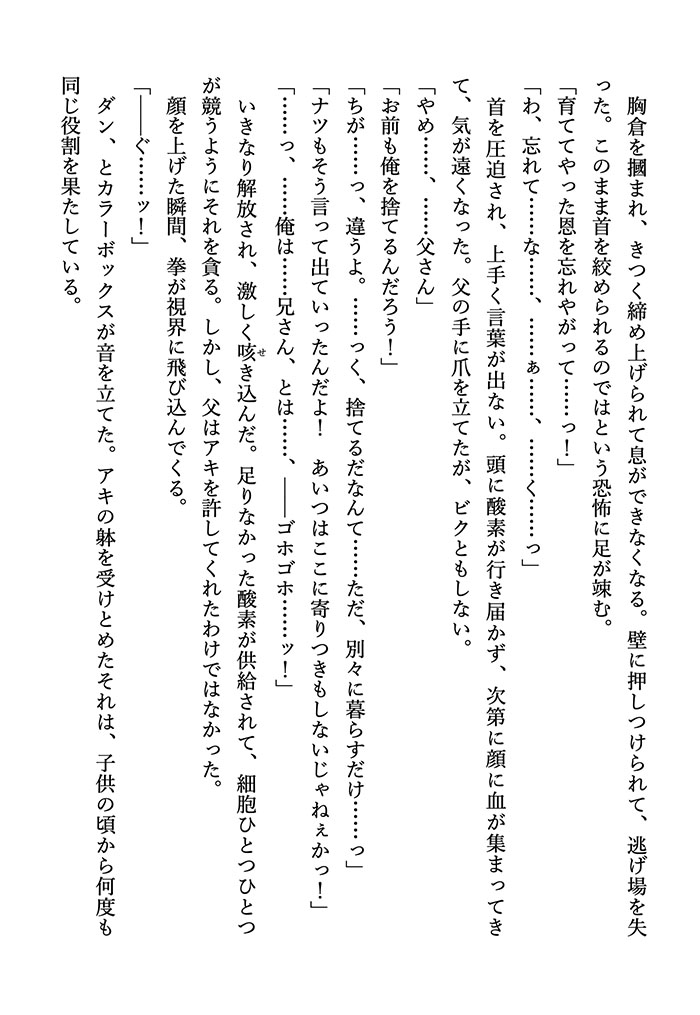 胸倉を摑まれ、きつく締め上げられて息ができなくなる。壁に押しつけられて、逃げ場を失
った。このまま首を絞められるのではという恐怖に足が竦む。
「育ててやった恩を忘れやがって……っ！」
「わ、忘れて……な……、……ぁ……、……く……っ」
　首を圧迫され、上手く言葉が出ない。頭に酸素が行き届かず、次第に顔に血が集まってき
て、気が遠くなった。父の手に爪を立てたが、ビクともしない。
「やめ……、……父さん」
「お前も俺を捨てるんだろう！」
「ちが……っ、違うよ。……っく、捨てるだなんて……ただ、別々に暮らすだけ……っ」
「ナツもそう言って出ていったんだよ！　あいつはここに寄りつきもしないじゃねぇかっ！」
「……っ、……俺は……兄さん、とは……、――ゴホゴホ……ッ！」
　いきなり解放され、激しく咳せき込んだ。足りなかった酸素が供給されて、細胞ひとつひとつ
が競うようにそれを貪る。しかし、父はアキを許してくれたわけではなかった。
　顔を上げた瞬間、拳が視界に飛び込んでくる。
「――ぐ……ッ！」
　ダン、とカラーボックスが音を立てた。アキの躰を受けとめたそれは、子供の頃から何度も
同じ役割を果たしている。